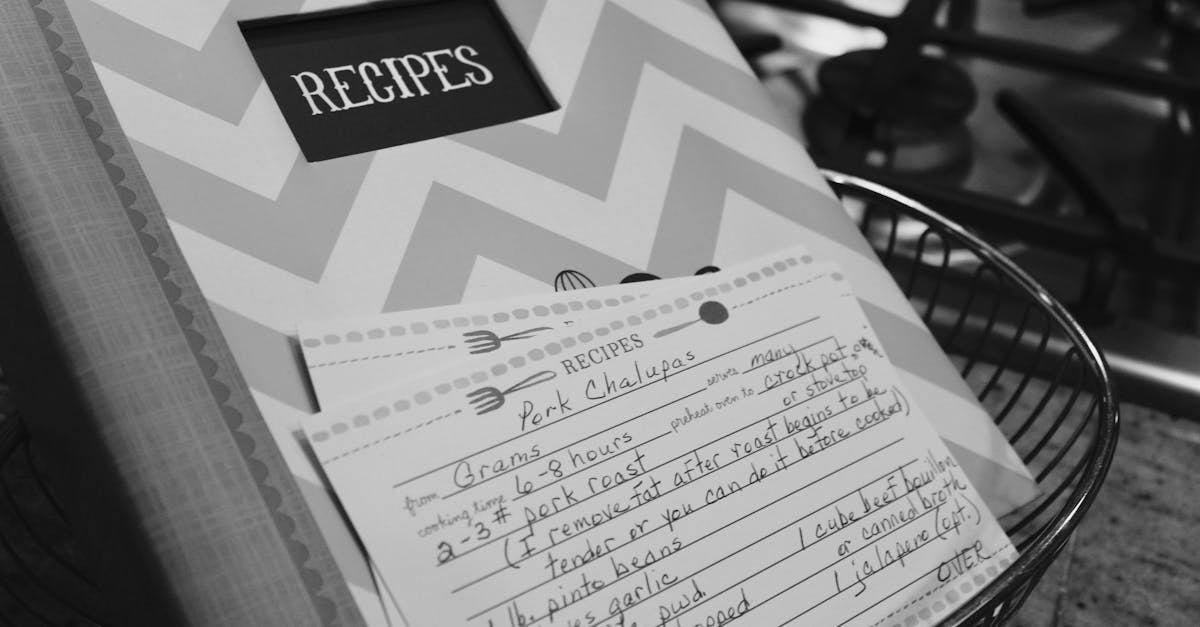 RECIPES
RECIPES
Pork Chalupas
from Grams serves many
cooking time 6-8 hours preheat oven to crock pot, oven
or stovetop
2-3 # pork roast
(I remove fat after roast begins to be
tender or you can do it before cooked)
1 lb. pinto beans 1 cube beef bouillon
garlic or canned broth
pwd. 1 jalapeno (opt.)
OVER